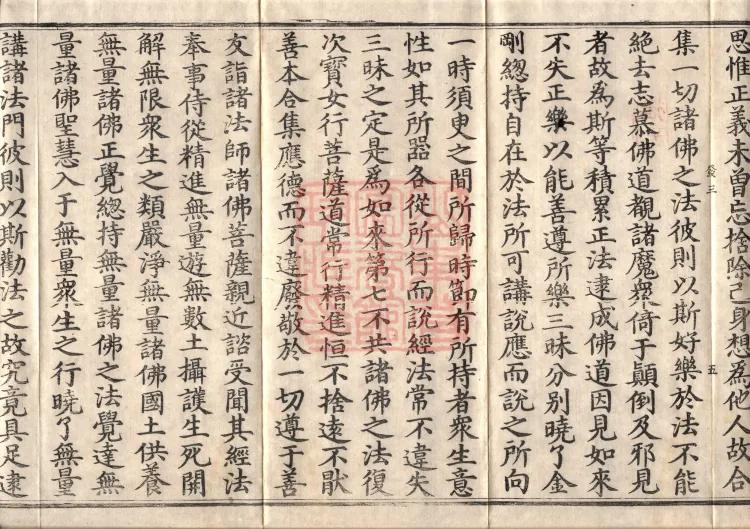 思惟正義未曾忘捨除己身想為他人故合
集一切諸佛之法彼則以斯好樂於法不能
絕去志慕佛道覩諸魔衆倚于顚倒及邪見
者故為斯等積累正法逮成佛道因見如來
不失正樂以能善遵所樂三昧分別曉了金
剛總持自在於法所可講說應而說之所向
一時須臾之間所歸時節有所持者衆生意
性如其所器各從所行而說經法常不違失
三昧之定是為如來第七不共諸佛之法復
次寶女行菩薩道常行精進恒不捨遠不猒
善本合集應德而不違廢敬於一切遵于善
友詣諸法師諸佛菩薩親近諮受聞其經法
奉事侍從精進無量遊無數土攝護生死開
解無限衆生之類嚴淨無量諸佛國土供養
無量諸佛正覺總持無量諸佛之法覺達無
量諸佛聖慧入于無量衆生之行曉了無量
講諸法門彼則以斯勸法之故究竟具足逮
三
五